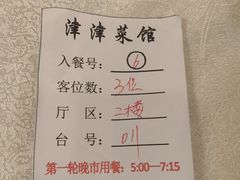 津津菜馆
入餐号: 6
客位数: 3位
厅 区: 二楼
台 号: 011
第一轮晚市用餐: 5:00—7:15